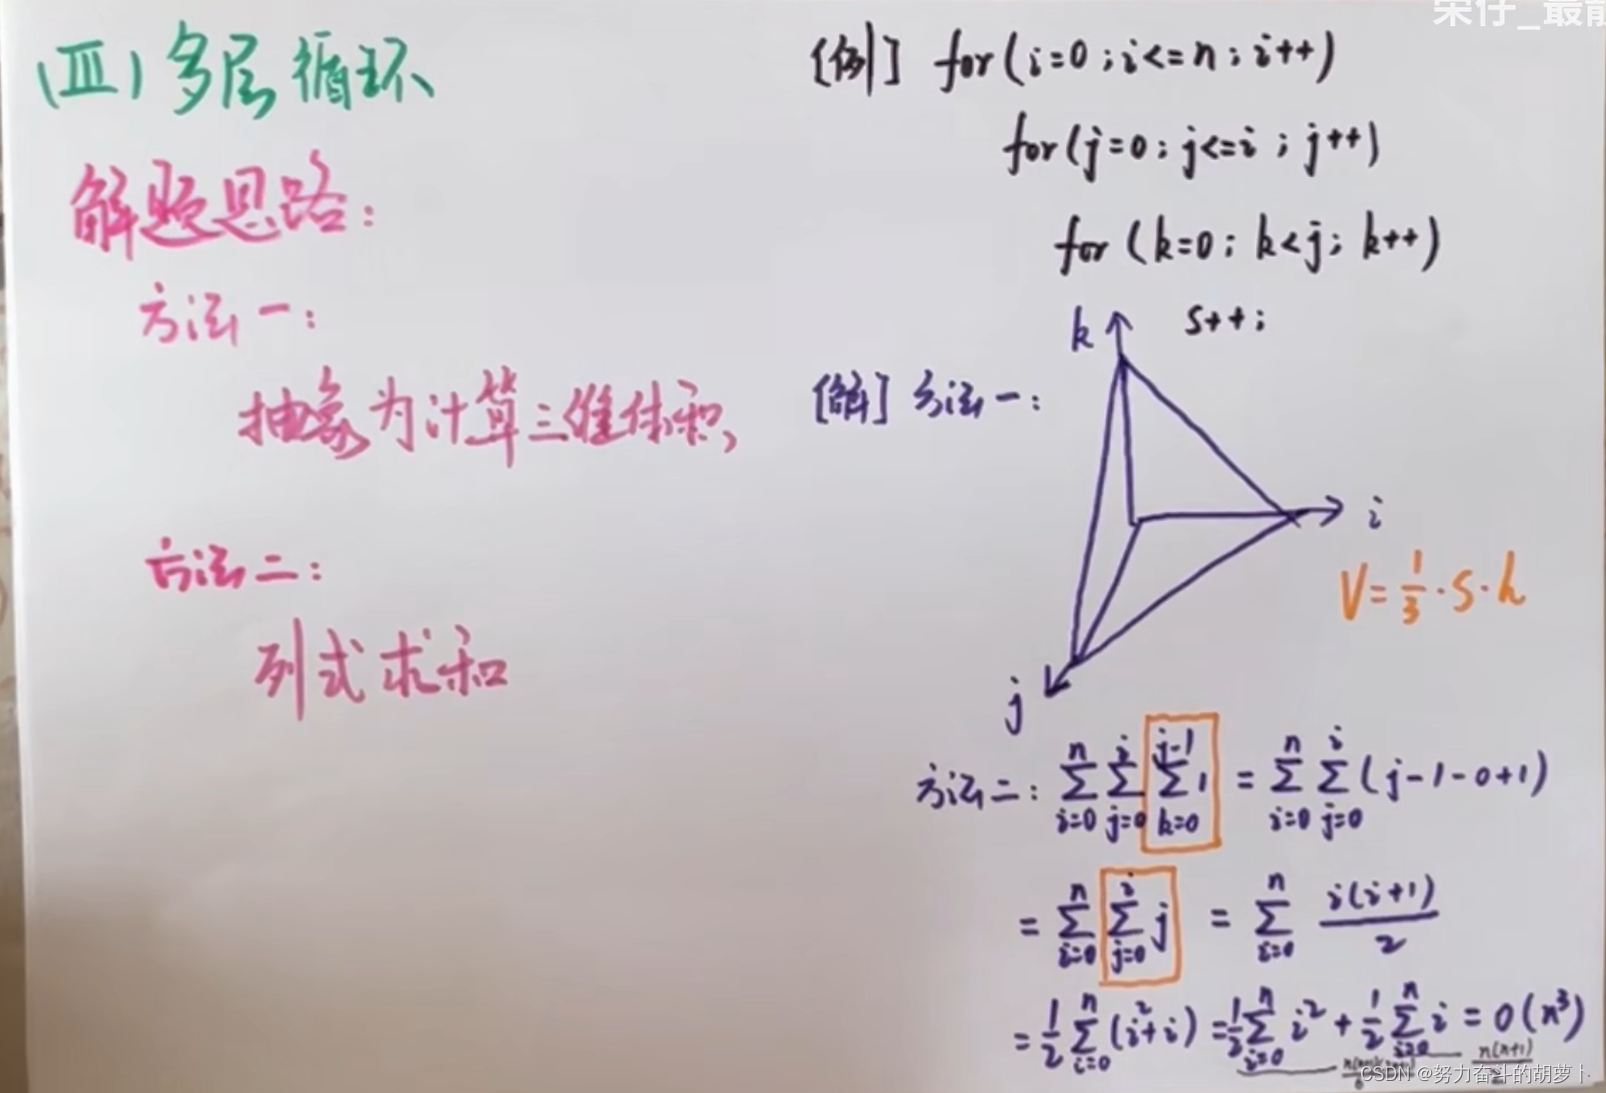 宋仔_最前
(三)多层循环
解题思路:
方法一:
抽象为计算三维体积
方法二:
列式求和
[例] for(i=0;i<=n;i++)
for(j=0;j<=i;j++)
for(k=0;k<j;k++)
s++;
[解] 方法一:
k
i
j
V=1/3·S·h
方法二: ∑_{i=0}^{n} ∑_{j=0}^{i} ∑_{k=0}^{j-1} 1 = ∑_{i=0}^{n} ∑_{j=0}^{i} (j-1-0+1)
= ∑_{i=0}^{n} ∑_{j=0}^{i} j = ∑_{i=0}^{n} i(i+1)/2
= 1/2 ∑_{i=0}^{n} (i²+i) = 1/2 ∑_{i=0}^{n} i² + 1/2 ∑_{i=0}^{n} i = O(n³)
n(n+1)/2
CSDN @努力奋斗的胡萝卜